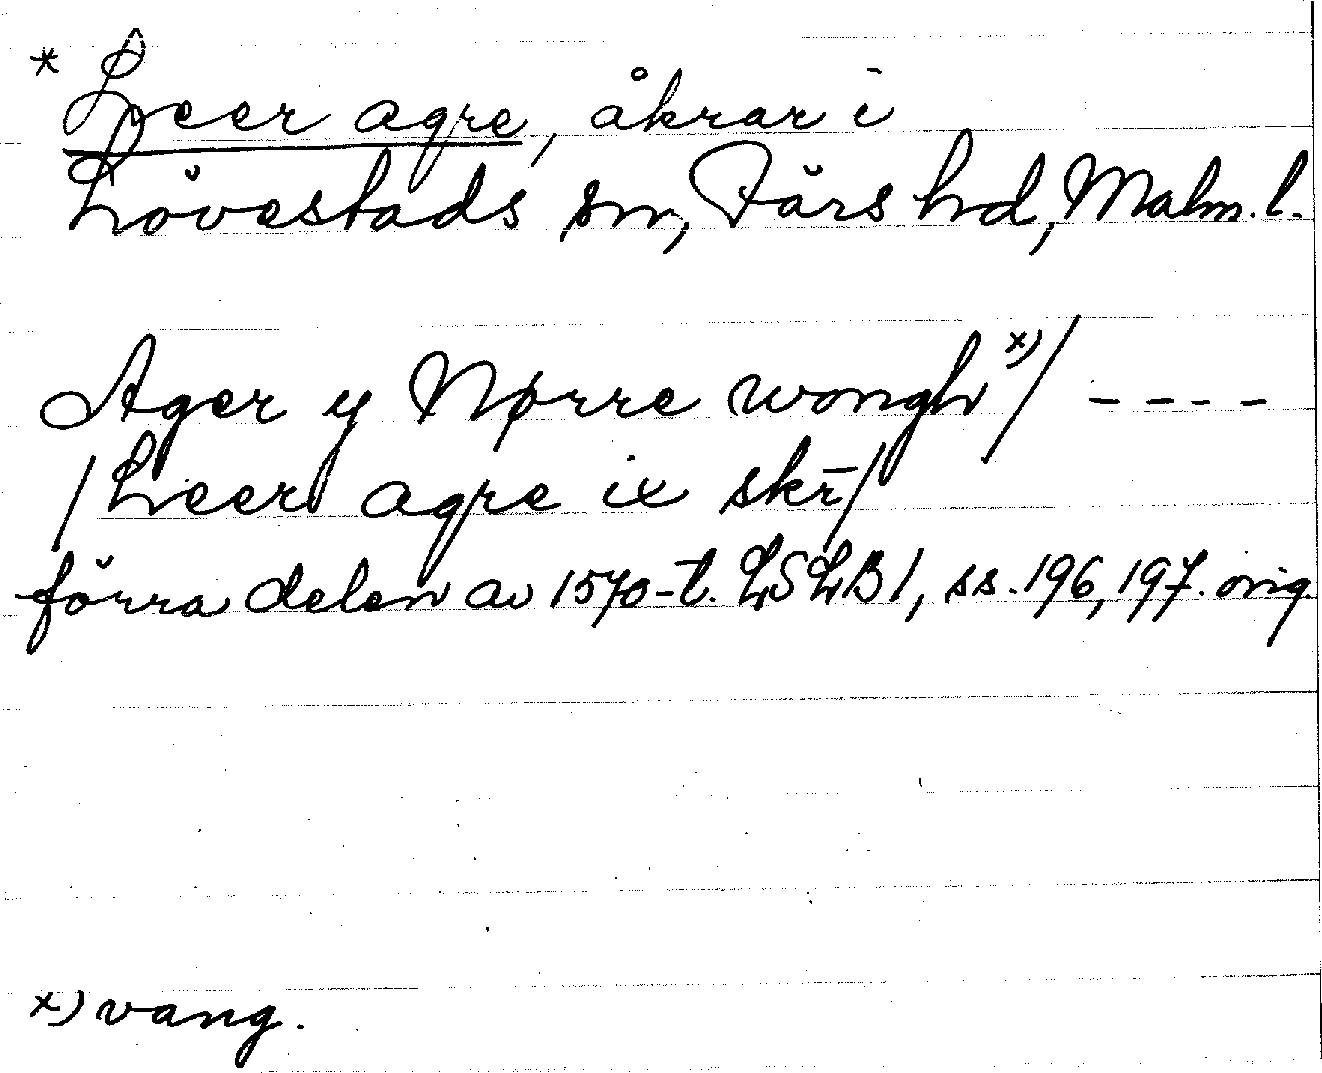 * Leer agre, åkrar i
Lövestads sn, Färs hd, Malm. l.
Ager y Nørre wongh x) / ----
/ Leer agre ix skr̄ /
förra delen av 1570-t. LSLB 1, ss. 196, 197. orig.
x) vang.